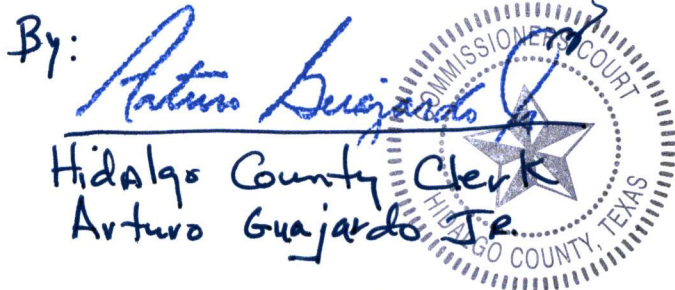 By:
Arturo Guajardo Jr
Hidalgo County Clerk
Arturo Guajardo JR.
COMMISSIONERS COURT
HIDALGO COUNTY, TEXAS